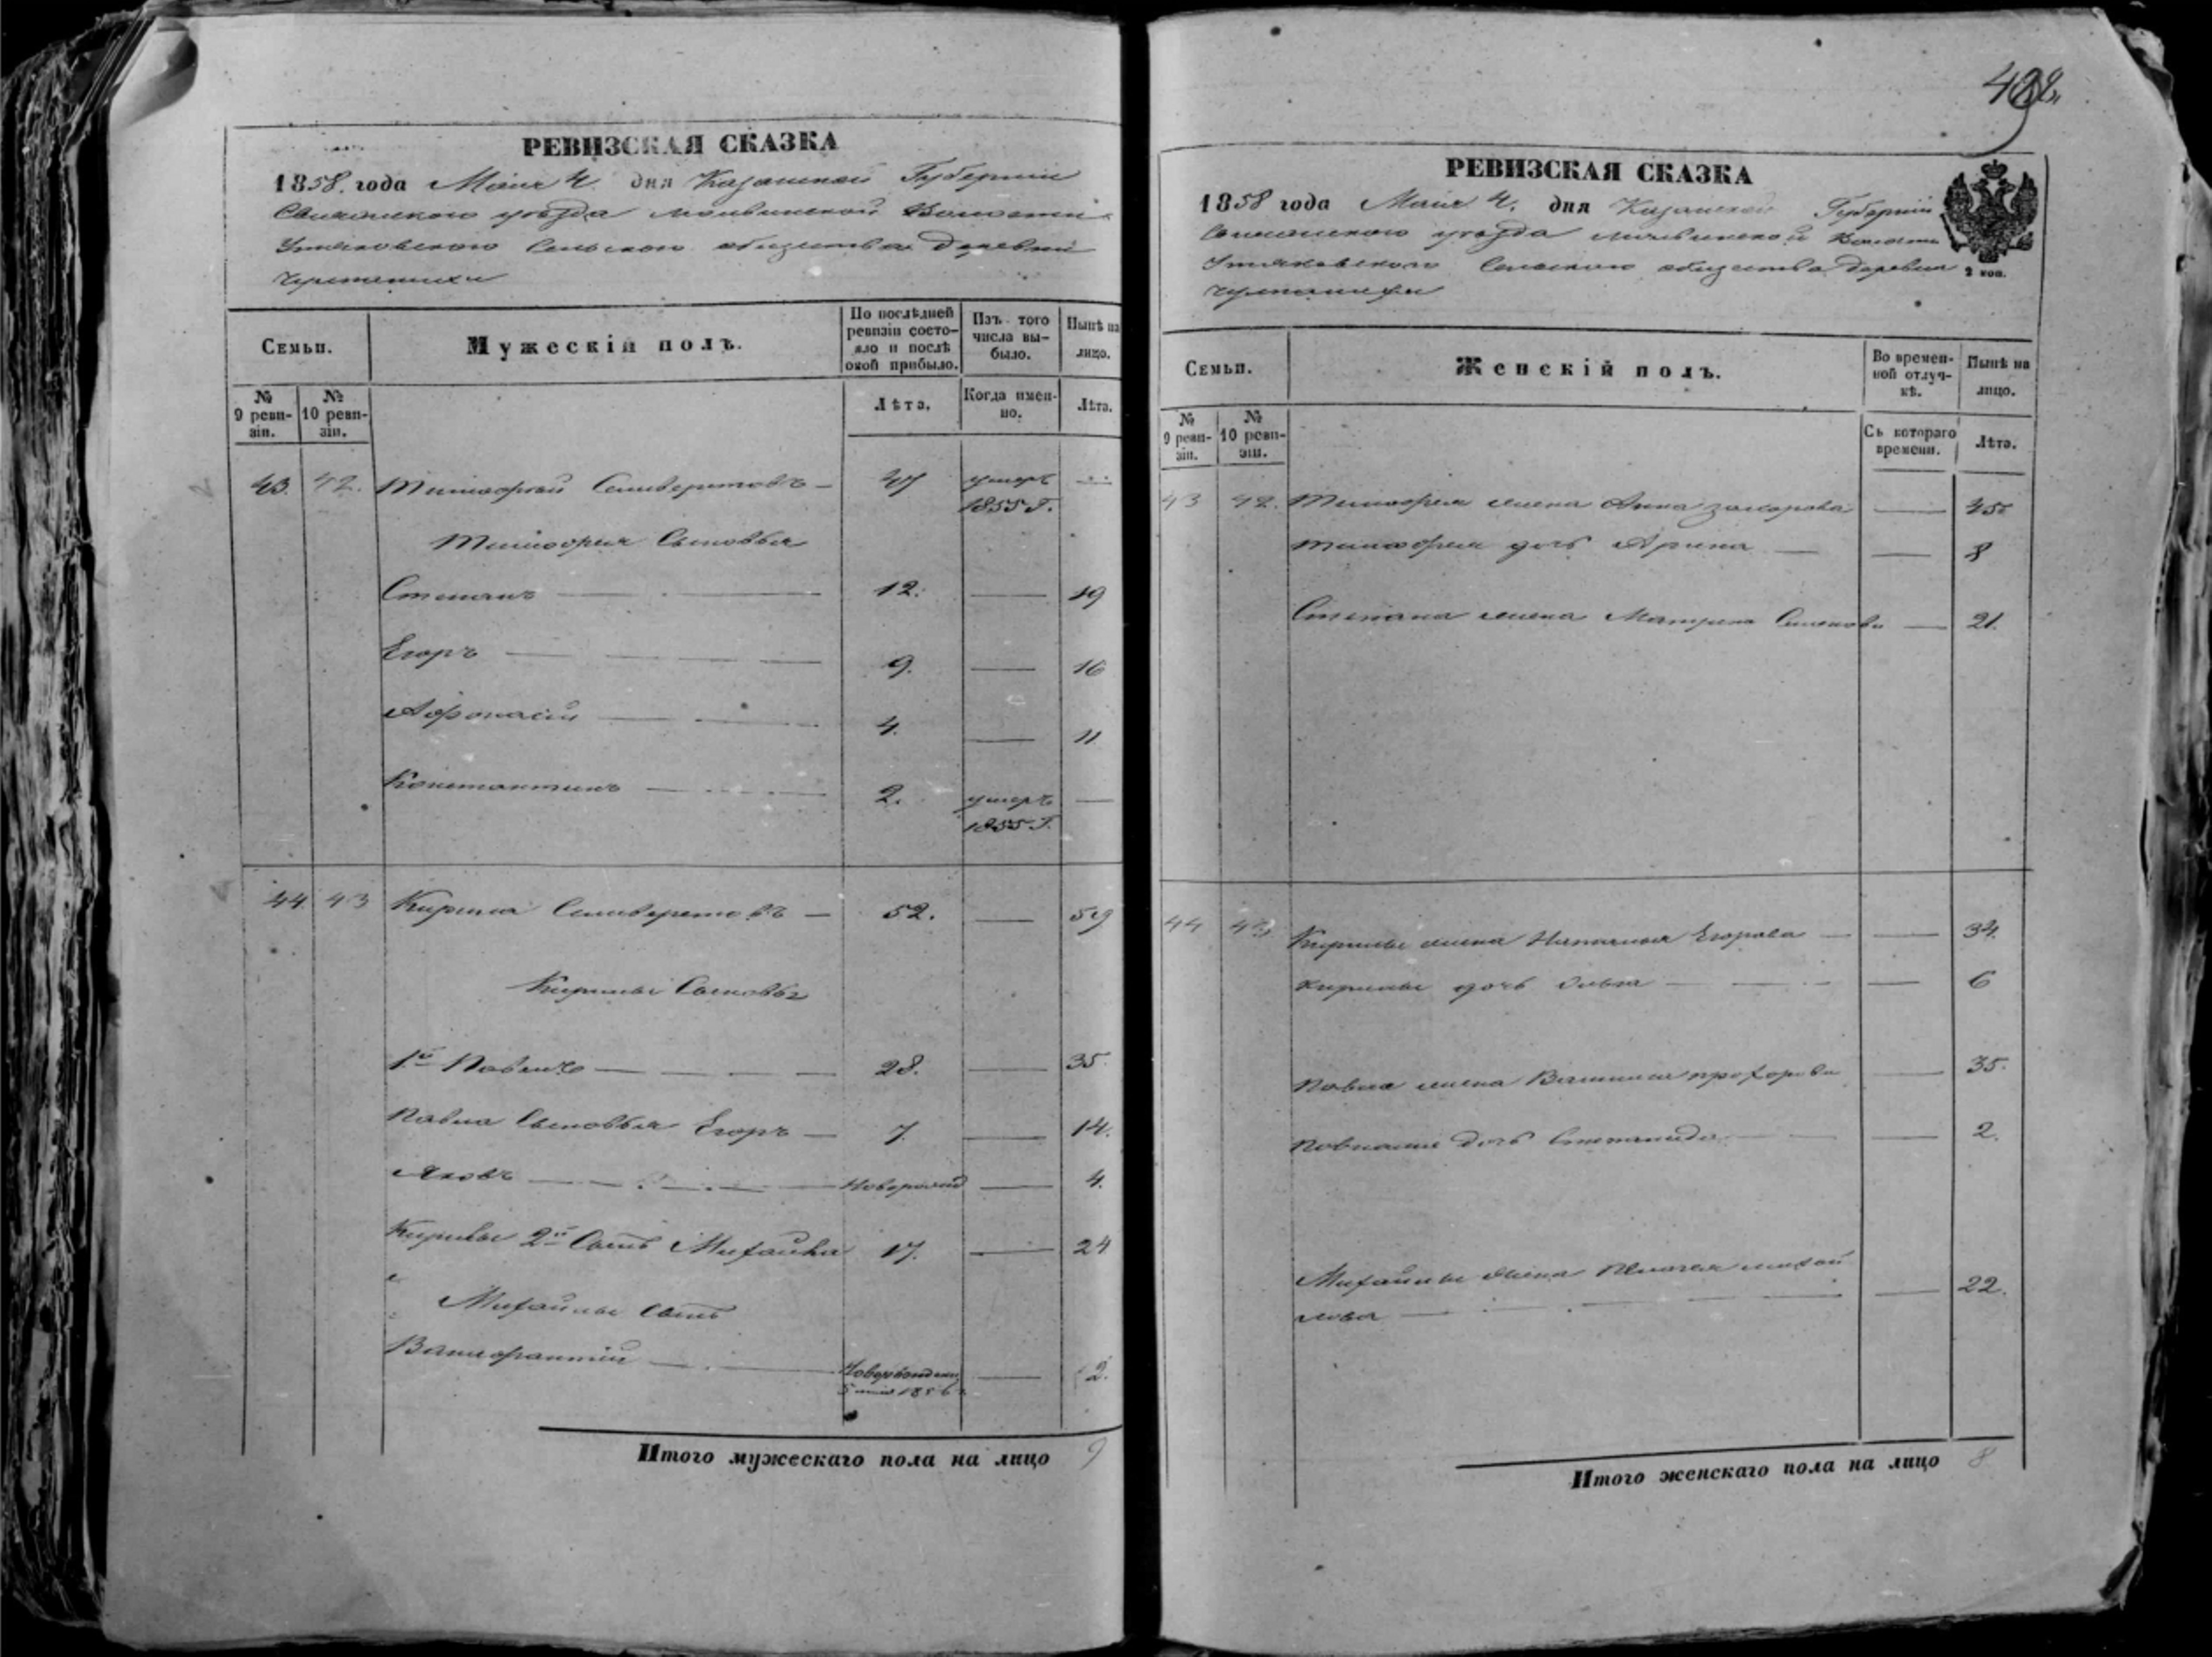 РЕВИЗСКАЯ СКАЗКА
1858. года Маія 4. дня Казанской Губерніи
уѣзда Волости
Сельскаго общества Деревни
Семьи.
Мужескій полъ.
По послѣдней ревизіи состояло и послѣ оной прибыло.
Изъ того числа выбыло.
Нынѣ на лицо.
№ 9 ревизіи.
№ 10 ревизіи.
Лѣта.
Когда именно.
Лѣта.
43. 42. Тимофей Селиверстовъ — 47 умеръ 1855 г. —
Тимофея Сыновья
Степанъ — 12. — 19
Егоръ — 9. — 16
Афонасій — 4. — 11
Константинъ — 2. умеръ 1855 г. —
44. 43 Кирила Селиверстовъ — 52. — 59
Кирилы Сыновья
1й Павелъ — 28. — 35.
Павла Сыновья Егоръ — 7. — 14.
Яковъ — новорожд — 4.
Кирилы 2й Сынъ Михайла 17. — 24
Михайлы Сынъ
— 1856 — 2.
Итого мужескаго пола на лицо 9
422
РЕВИЗСКАЯ СКАЗКА
1858 года Маія 4. дня Казанской Губерніи
уѣзда Волости
Сельскаго общества деревни
2 коп.
Семьи.
Женскій полъ.
Во временной отлучкѣ.
Нынѣ на лицо.
№ 9 ревизіи.
№ 10 ревизіи.
Съ котораго времени.
Лѣта.
43 42. Тимофея жена Анна — 45
Тимофея дочь Арина — 8
Степана жена Матрена — 21.
44 43 Кирилы жена Наталья Егорова — 34.
Кирилы дочь — 6
Павла жена прохорова — 35.
дочь Степанида — 2.
Михайлы жена михай
лова — 22.
Итого женскаго пола на лицо 8